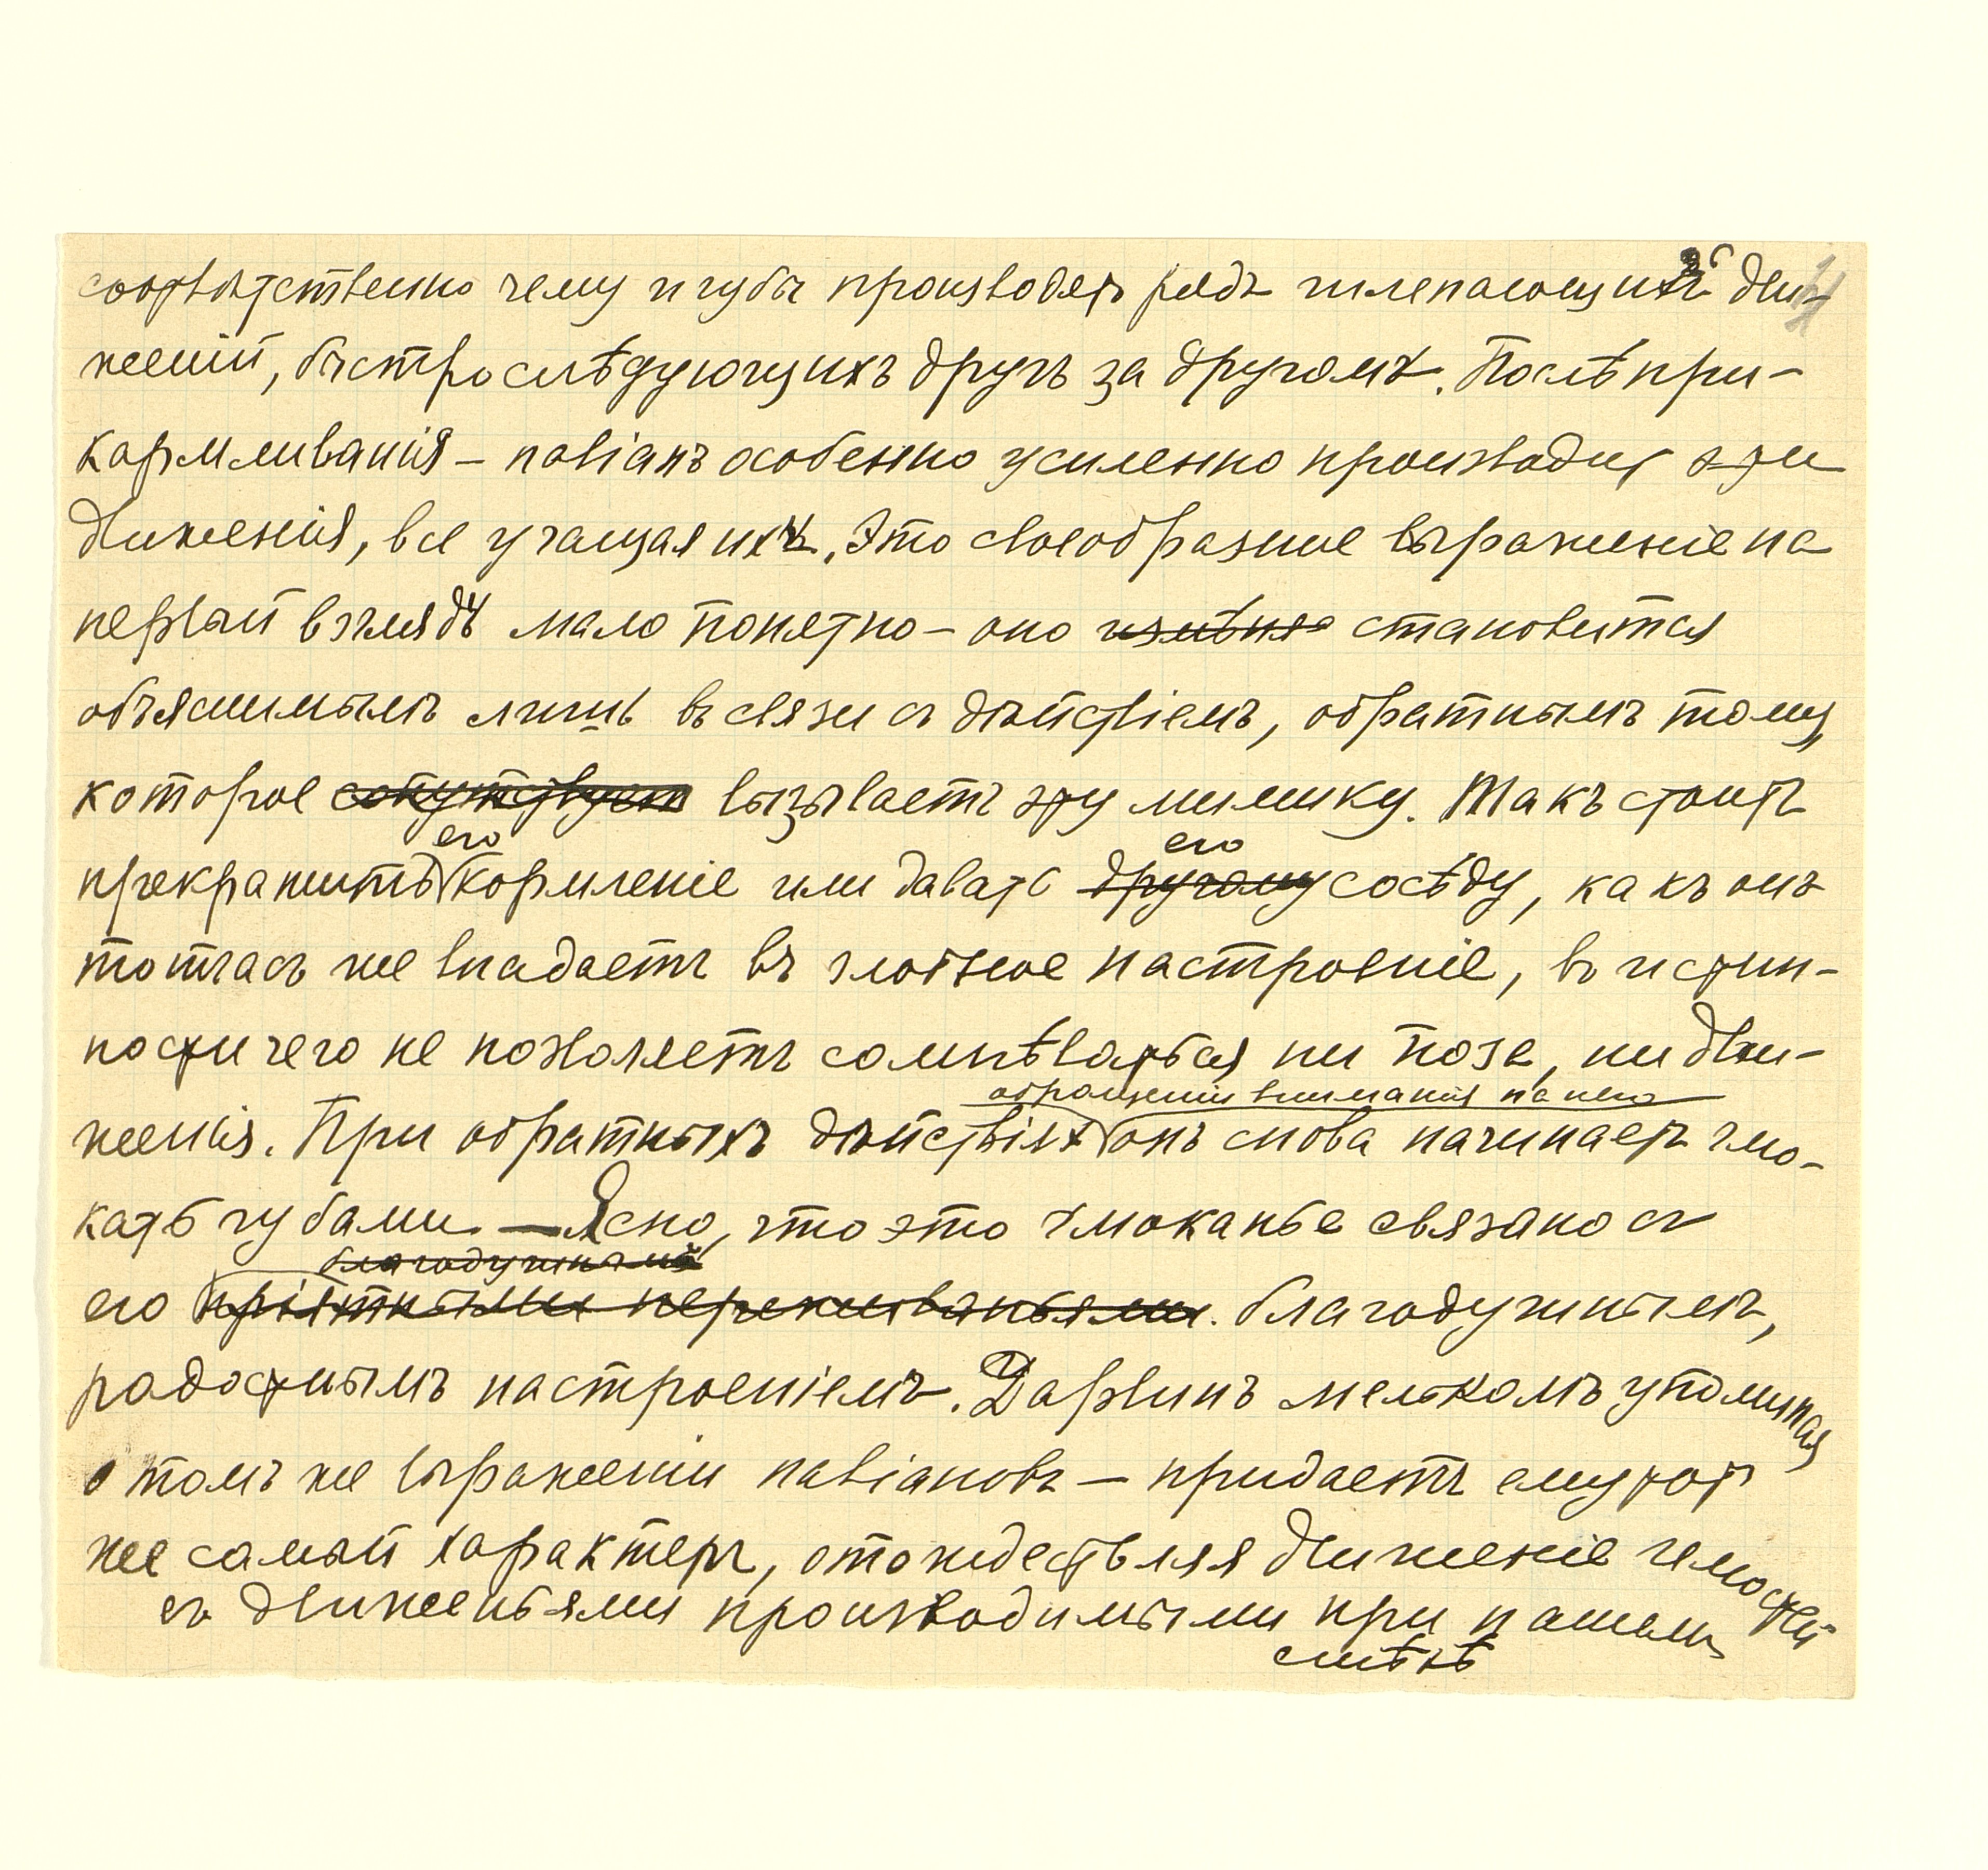 соотвѣтственно чему и губы производятъ рядъ шлепающихъ дви-
женій, быстро слѣдующихъ другъ за другомъ. Послѣ при-
кармливанія – павіанъ особенно усиленно производит эти
движенія, все учащая ихъ. Это своеобразное выраженіе на
первый взглядъ мало понятно – оно становится
объяснимымъ лишь въ связи съ дѣйствіемъ, обратнымъ тому,
которое сопутствует вызываетъ эту мимику. Такъ стоитъ
его его
прекратить кормленіе или давать другому сосѣду, какъ онъ
тотчасъ же впадаетъ въ злобное настроеніе, въ истин-
ности чего не позволяетъ сомнѣваться ни поза, ни дви-
обращеніи вниманія на него
женія. При обратныхъ дѣйствіях онъ снова начинаетъ чмо-
кать губами. – Ясно, что это чмоканье связано съ
благодушнымъ
его пріятными переживаньями. благодушнымъ,
радостнымъ настроеніемъ. Дарвинъ мелькомъ упоминая
о томъ же выраженіи павіановъ – придаетъ ему тот
же самый характеръ, отождествляя движеніе челюстей
съ движеньями производимыми при нашемъ
смѣхѣ